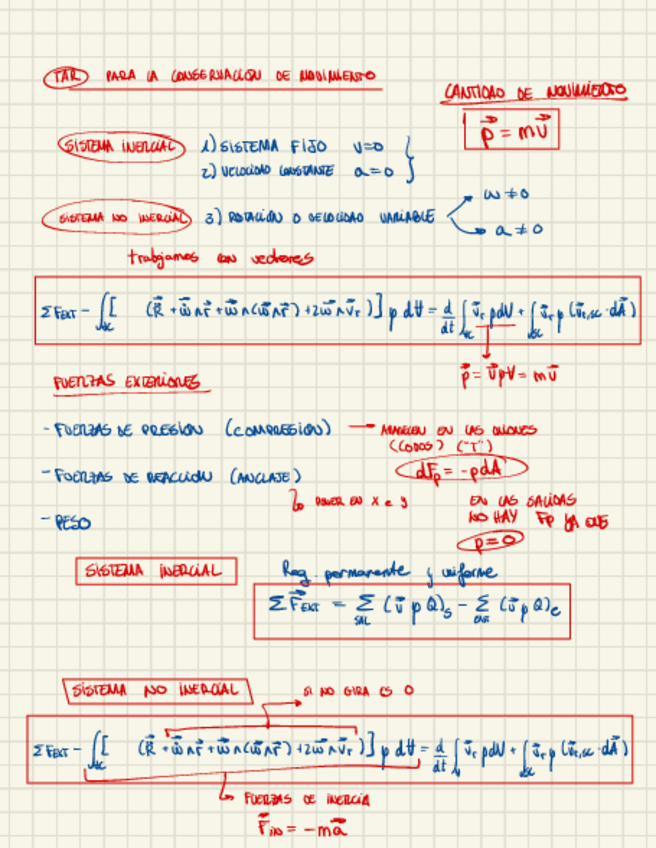 TAR PARA LA CONSERVACIÓN DE MOVIMIENTO
CANTIDAD DE MOVIMIENTO
p⃗ = mv⃗
SISTEMA INERCIAL 1) SISTEMA FIJO v=0
2) VELOCIDAD CONSTANTE a=0
SISTEMA NO INERCIAL 3) ROTACIÓN O VELOCIDAD VARIABLE
ω≠0
a≠0
trabajamos con vectores
ΣF_EXT - ∫_VC [ (R̈⃗ + ω̇⃗∧r⃗ + ω⃗∧(ω⃗∧r⃗) + 2ω⃗∧v⃗r)] ρ d∀ = d/dt ∫_VC v⃗r ρdV + ∫_SC v⃗r ρ (v⃗r,sc · dA⃗)
p⃗ = v⃗ρV = mv⃗
FUERZAS EXTERIORES
- FUERZAS DE PRESIÓN (COMPRESIÓN) → APARECEN EN LAS UNIONES
(CODOS) ("T")
dFp = -pdA
- FUERZAS DE REACCIÓN (ANCLAJE)
↳ PONER EN X e y
EN LAS SALIDAS
NO HAY Fp YA QUE
p=0
- PESO
SISTEMA INERCIAL
Reg. permanente y uniforme
ΣF⃗EXT = Σ_SAL (v⃗ ρ Q)s - Σ_ENT (v⃗ ρ Q)e
SISTEMA NO INERCIAL → SI NO GIRA ES 0
ΣF_EXT - ∫_VC [ (R̈⃗ + ω̇⃗∧r⃗ + ω⃗∧(ω⃗∧r⃗) + 2ω⃗∧v⃗r)] ρ d∀ = d/dt ∫_V v⃗r ρdV + ∫_SC v⃗r ρ (v⃗r,sc · dA⃗)
↳ FUERZAS DE INERCIA
F⃗in = -ma⃗